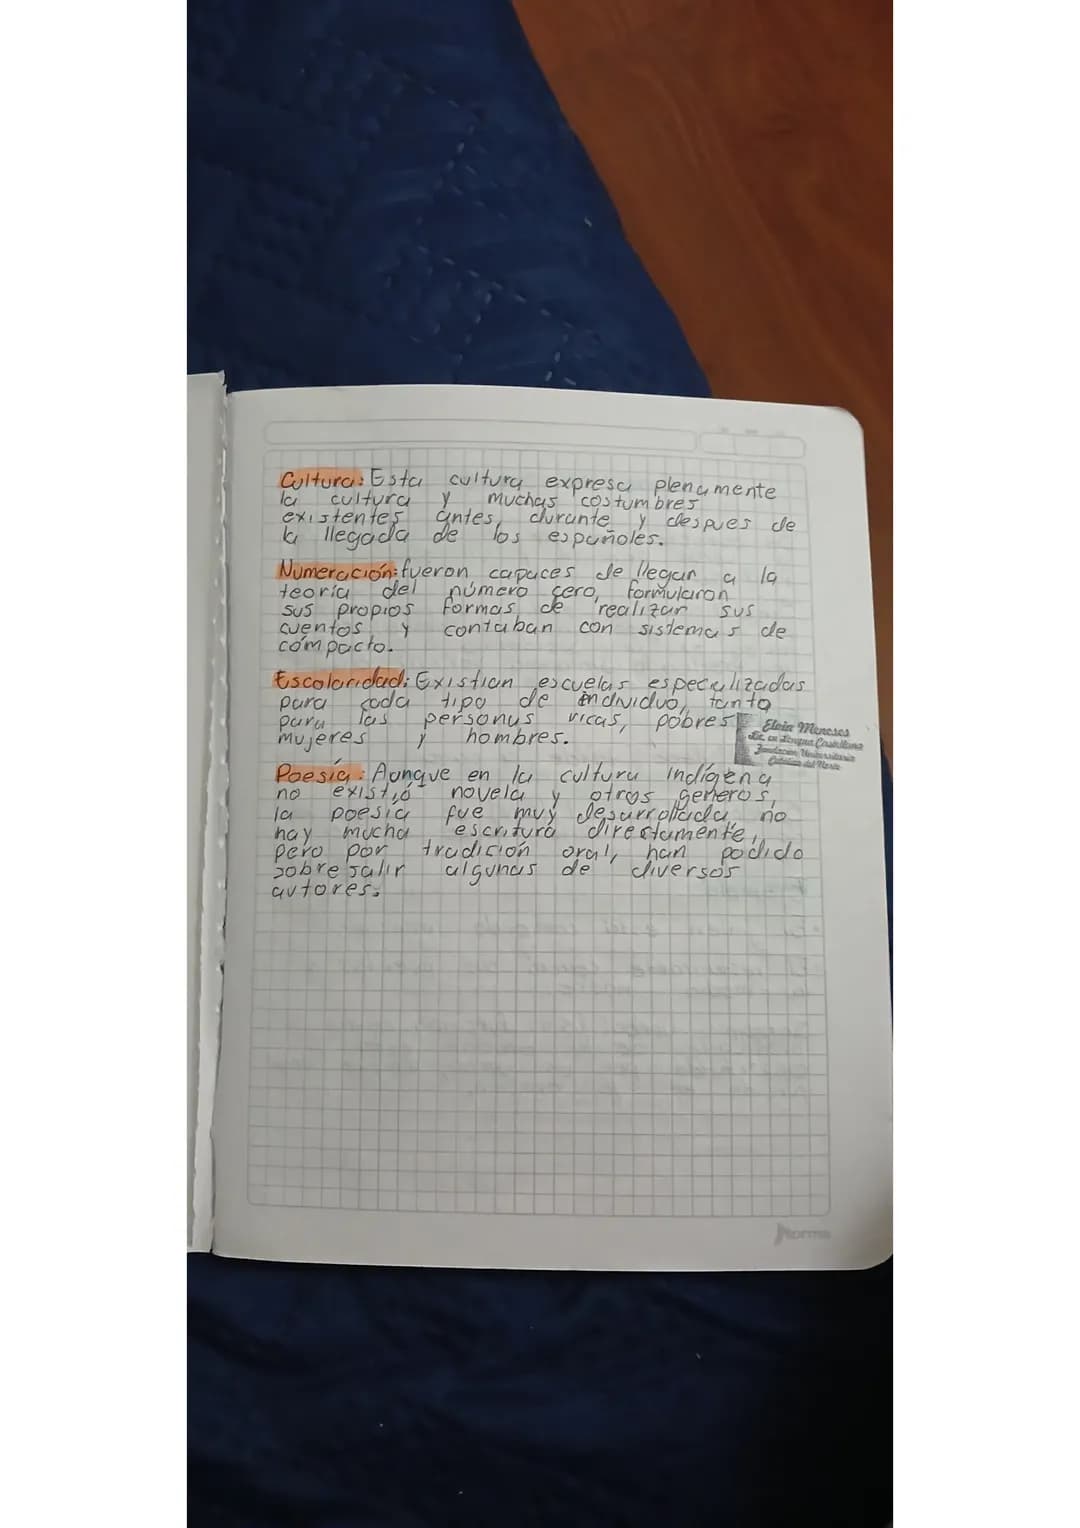 Cultura: Esta cultura expresa plenamente
la cultura y muchas costumbres
existentes antes, durante y despues de
la llegada de los españoles.
Numeración: fueron capaces de llegar a la
teoría del número cero, formularon
sus propios formas de realizar sus
cuentos y contaban con sistemas de
compacto.
Escolaridad: Existian escuelas especializadas
para cada tipo de individuo, tanto
para las personas ricas, pobres
mujeres y hombres.
Elvia Meneses
Lic. en Lengua Castellana
Fundación Universitaria
Católica del Norte
Poesía: Aunque en la cultura indígena
no existió novela y otros generos,
la poesía fue muy desarrollada no
hay mucha escritura directamente,
pero por tradición oral, han podido
sobresalir algunas de diversos
autores.
Norma